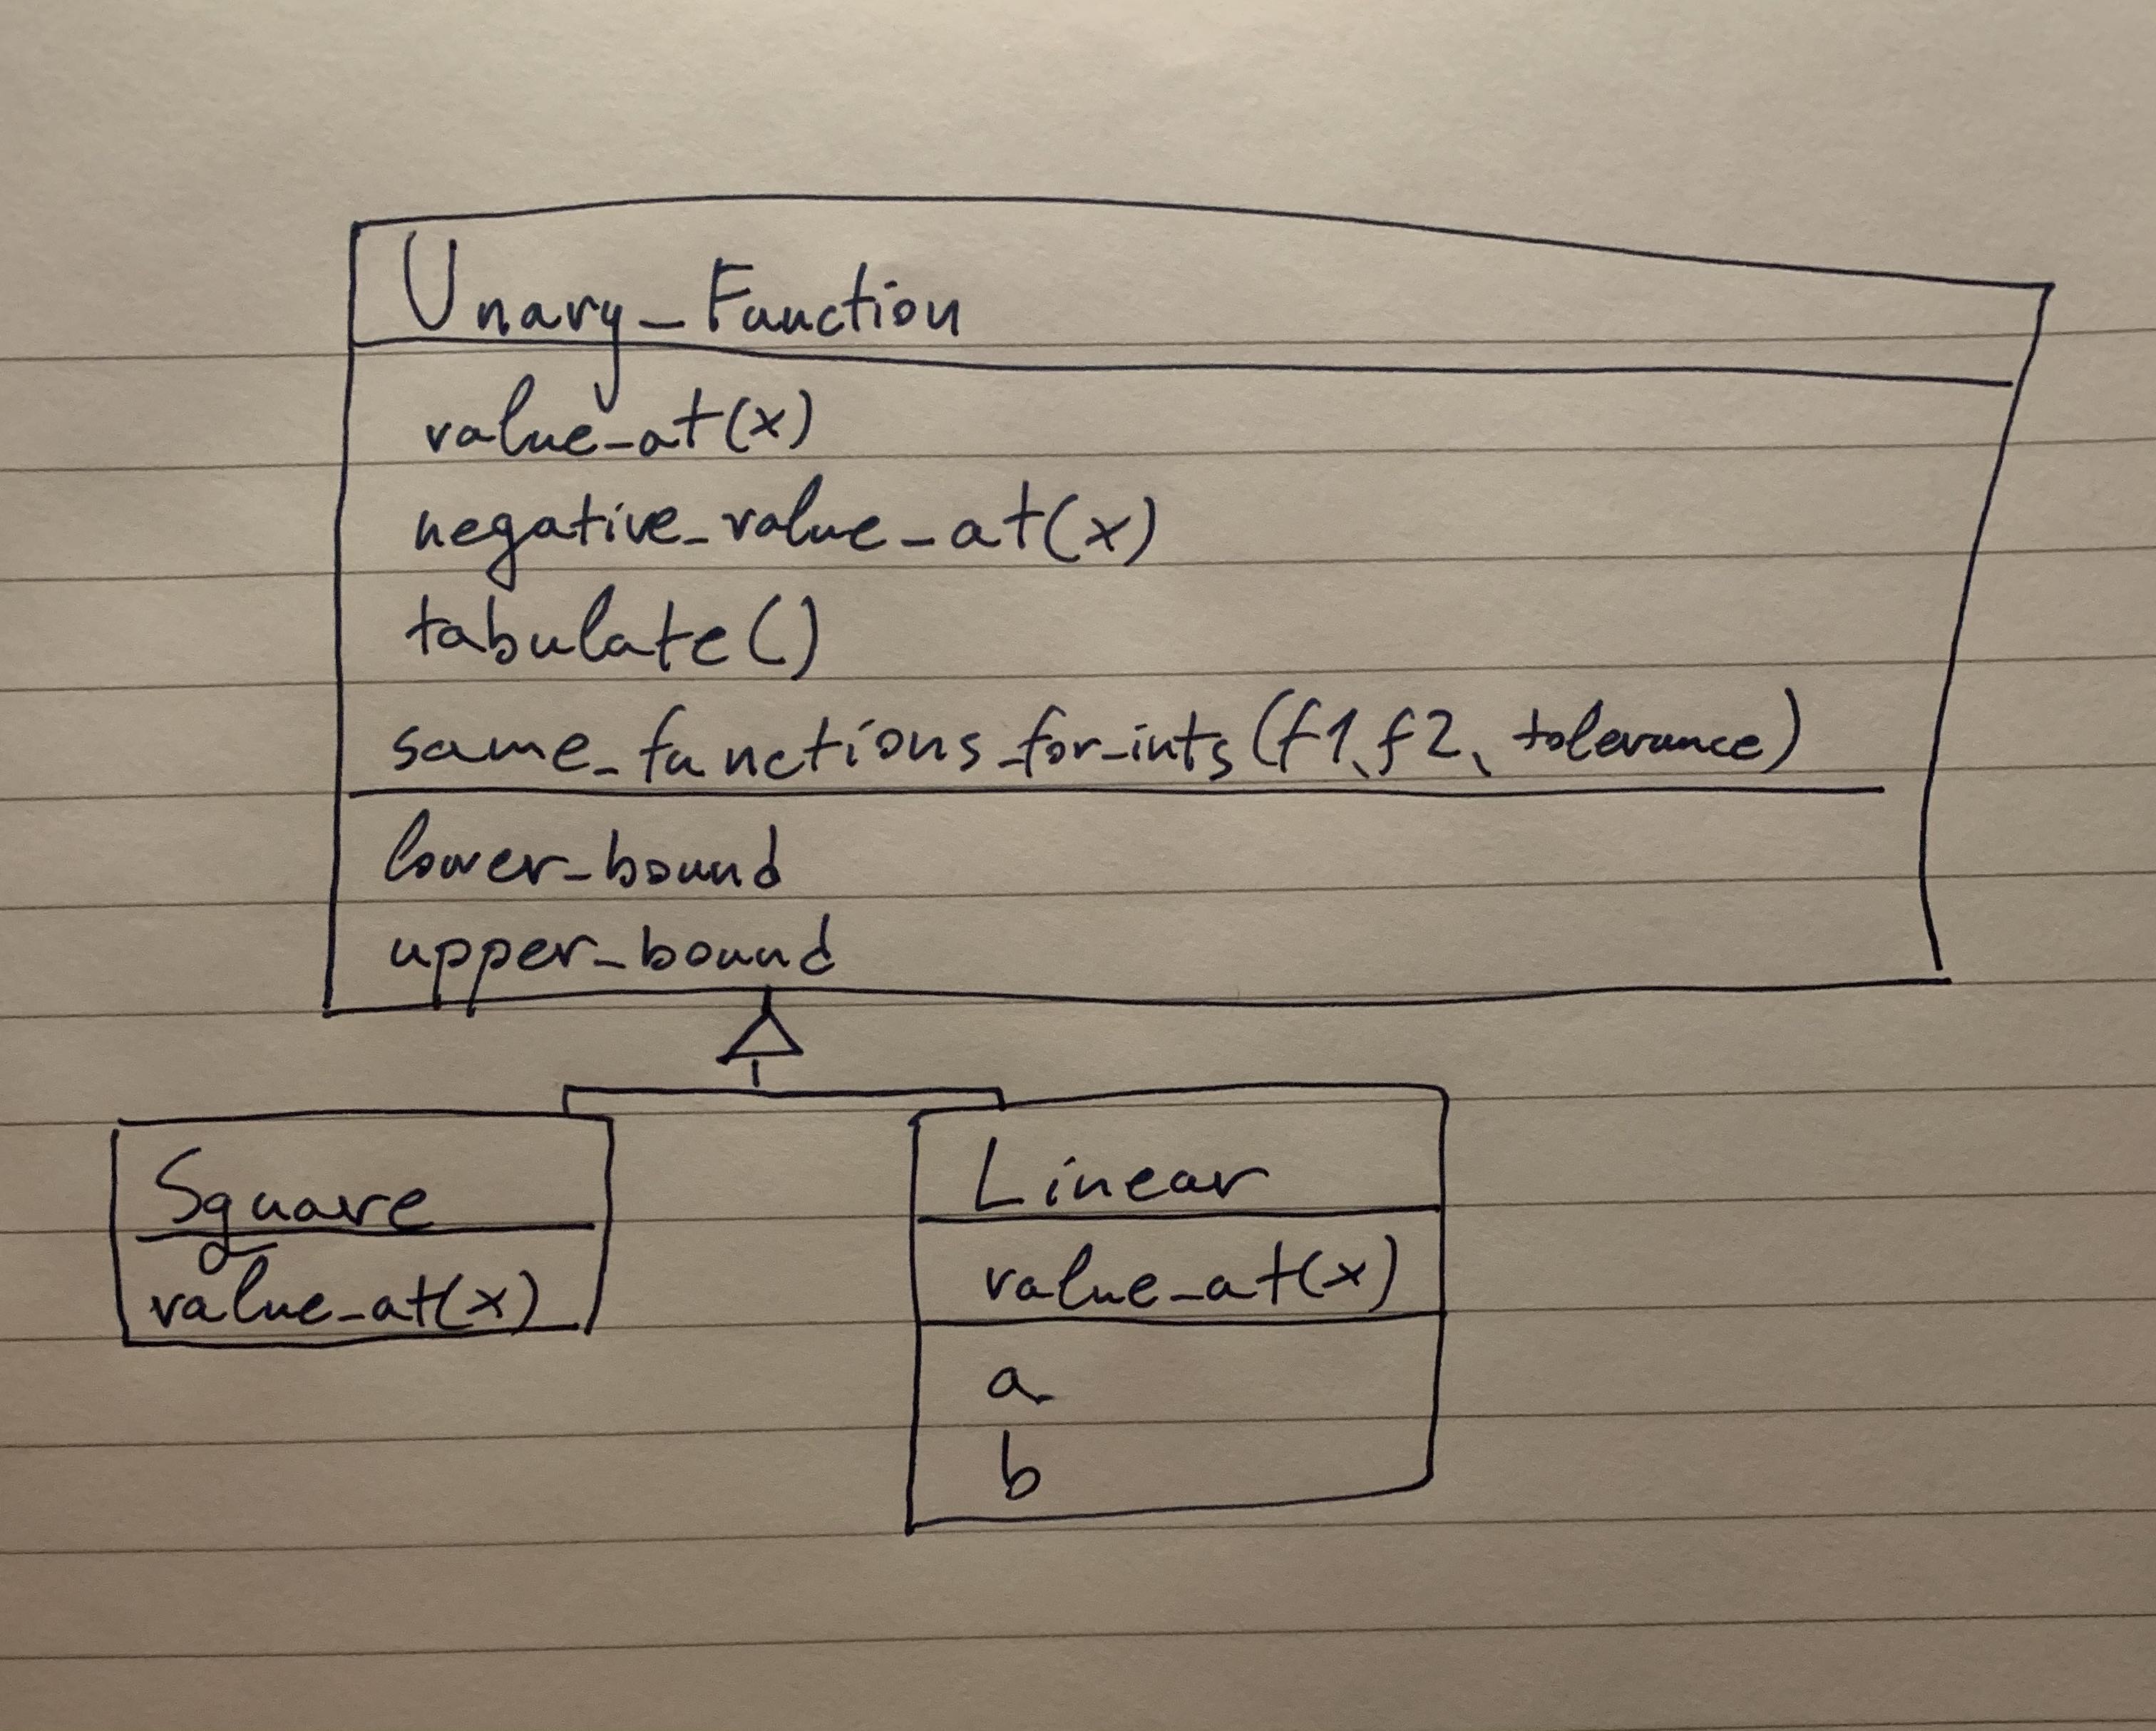 Unary_Function
value_at(x)
negative_value_at(x)
tabulate()
same_functions_for_ints(f1, f2, tolerance)
lower_bound
upper_bound
Square
value_at(x)
Linear
value_at(x)
a
b